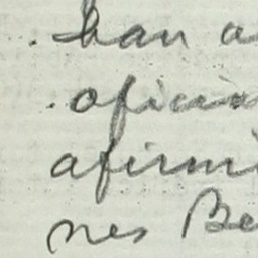 . han a
. oficia
afirmi
nes Be